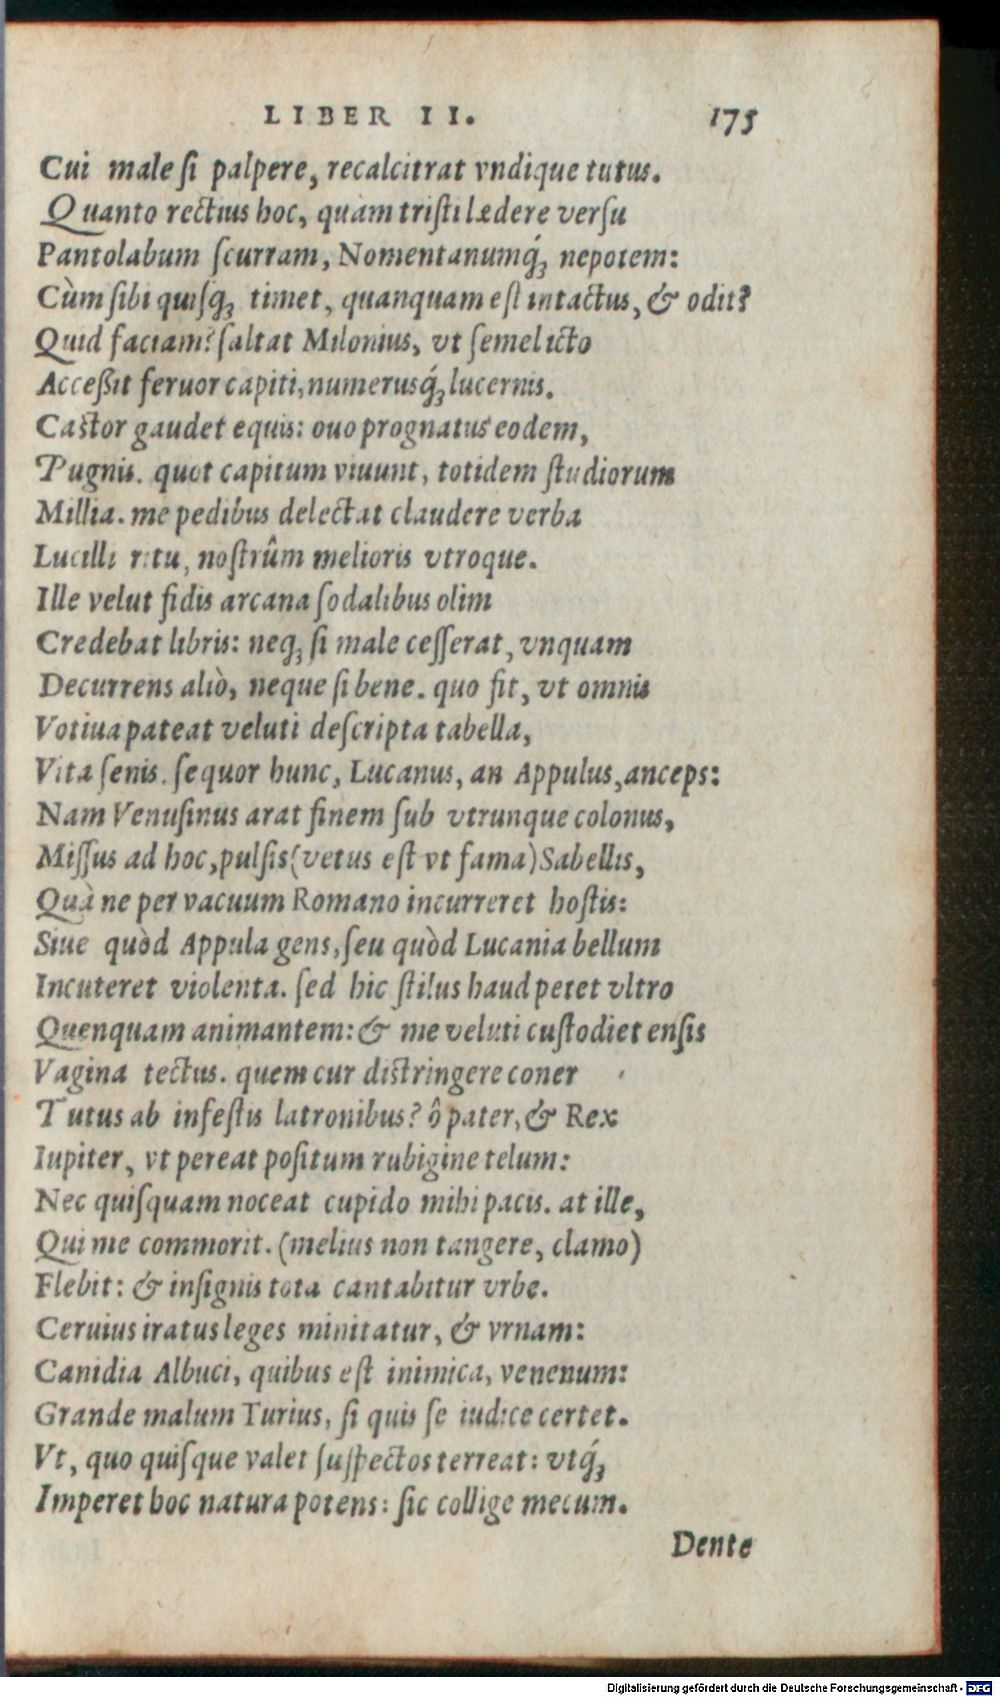 LIBER II. 175
Cui male ſi palpere, recalcitrat vndique tutus.
Quanto rectius hoc, quàm triſti lædere verſu
Pantolabum ſcurram, Nomentanumq́; nepotem:
Cùm ſibi quiſq; timet, quanquam eſt intactus, & odit?
Quid faciam? ſaltat Milonius, vt ſemel icto
Acceßit feruor capiti, numerusq́; lucernis.
Caſtor gaudet equis: ouo prognatus eodem,
Pugnis. quot capitum viuunt, totidem ſtudiorum
Millia. me pedibus delectat claudere verba
Lucilli ritu, noſtrûm melioris vtroque.
Ille velut fidis arcana ſodalibus olim
Credebat libris: neq; ſi male ceſſerat, vnquam
Decurrens aliò, neque ſi bene. quo fit, vt omnis
Votiua pateat veluti deſcripta tabella,
Vita ſenis. ſequor hunc, Lucanus, an Appulus, anceps:
Nam Venuſinus arat finem ſub vtrunque colonus,
Miſſus ad hoc, pulſis (vetus eſt vt fama) Sabellis,
Quà ne per vacuum Romano incurreret hoſtis:
Siue quòd Appula gens, ſeu quòd Lucania bellum
Incuteret violenta. ſed hic ſtilus haud petet vltro
Quenquam animantem: & me veluti cuſtodiet enſis
Vagina tectus. quem cur diſtringere coner
Tutus ab infeſtis latronibus? ô pater, & Rex
Iupiter, vt pereat poſitum rubigine telum:
Nec quiſquam noceat cupido mihi pacis. at ille,
Qui me commorit. (melius non tangere, clamo)
Flebit: & inſignis tota cantabitur vrbe.
Ceruius iratus leges minitatur, & vrnam:
Canidia Albuci, quibus eſt inimica, venenum:
Grande malum Turius, ſi quis ſe iudice certet.
Vt, quo quiſque valet ſuſpectos terreat: vtq́;
Imperet hoc natura potens: ſic collige mecum.
Dente
Digitalisierung gefördert durch die Deutsche Forschungsgemeinschaft - DFG